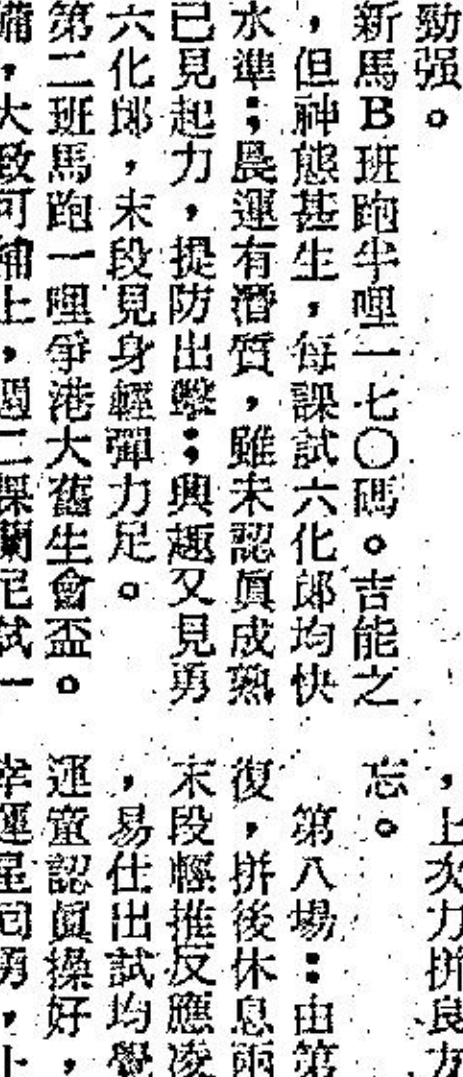 勁强。
新馬B班跑半哩一七〇碼。吉能之
，但神態甚生，每課試六化郎均快
水準；晨運有潛質，雖未認眞成熟
已見起力，提防出擊；興趣又見勇
六化郎，末段見身輕彈力足。
第二班馬跑一哩爭港大舊生會盃。
備，大致可補上，週二課蘭尼試一
，上次力拼良友
忘。
第八場：由第
復，拼後休息兩
末段輕推反應凌
，易仕出試均覺
運童認眞操好，
幸運星回勇，上